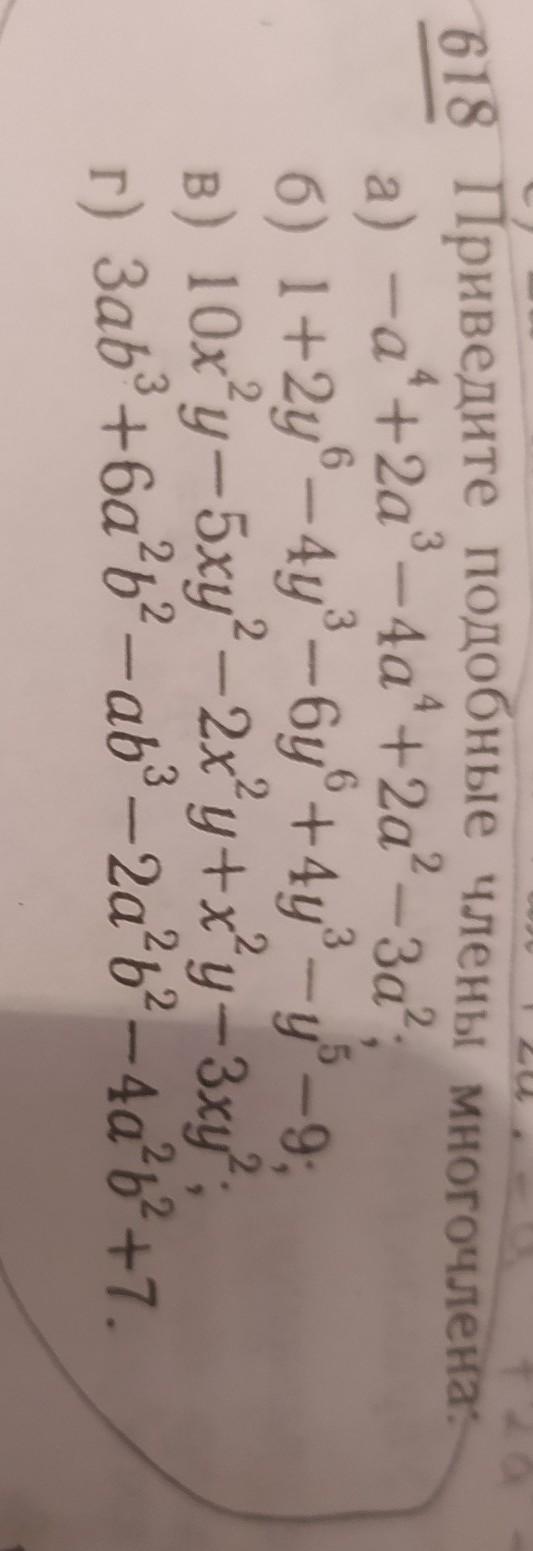 618 Приведите подобные члены многочлена:
а) −a⁴+2a³−4a⁴+2a²−3a²;
б) 1+2y⁶−4y³−6y⁶+4y³−y⁵−9;
в) 10x²y−5xy²−2x²y+x²y−3xy²;
г) 3ab³+6a²b²−ab³−2a²b²−4a²b²+7.